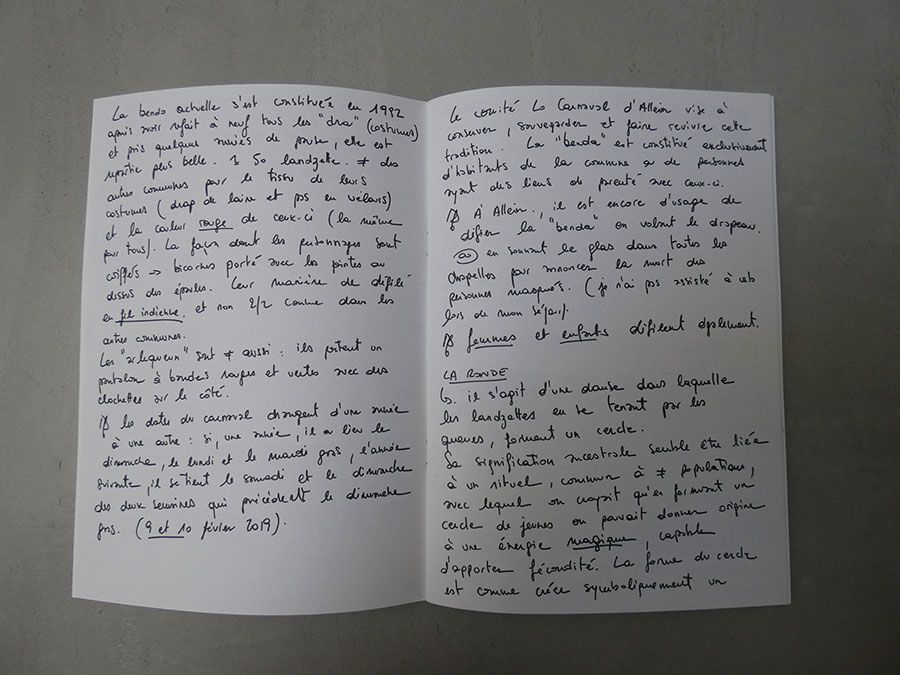 La benda actuelle s'est constituée en 1992
après avoir refait à neuf tous les "dra" (costumes)
et pris quelques années de pause, elle est
repartie plus belle. 50 landzette. ≠ des
autres communes par le tissu de leurs
costumes (drap de laine et pas en velours)
et la couleur rouge de ceux-ci (la même
pour tous). La façon dont les personnages sont
coiffés → bicornes porté avec les pointes au
dessus des épaules. Leur manière de défilé
en file indienne. et non 2/2 comme dans les
autres communes.
Les "arlequeun" sont ≠ aussi : ils portent un
pantalon à bandes rouges et vertes avec des
clochettes sur le côté.
les dates du carnaval changent d'une année
à une autre : si, une année, il a lieu le
dimanche, le lundi et le mardi gras, l'année
suivante, il se tient le samedi et le dimanche
des deux semaines qui précèdent le dimanche
gras. (9 et 10 février 2019).
Le comité Lo Carnaval d'Allein vise à
conserver, sauvegarder et faire revivre cette
tradition. La "benda" est constitué exclusivement
d'habitants de la commune a de personnes
ayant des liens de parenté avec ceux-ci.
À Allein., il est encore d'usage de
défier la "benda" en volant le drapeau.
ou en sonnant le glas dans toutes les
chapelles pour annoncer la mort des
personnes masqués. (je n'ai pas assisté à cela
lors de mon séjour).
femmes et enfants défilent également.
LA RONDE
il s'agit d'une danse dans laquelle
les landzettes en se tenant par les
queues, forment un cercle.
Sa signification ancestrale semble être liée
à un rituel, commun à ≠ populations,
avec lequel on croyait qu'en formant un
cercle de jeunes on pouvait donner origine
à une énergie magique, capable
d'apporter fécondité. La forme du cercle
est comme créee symboliquement un